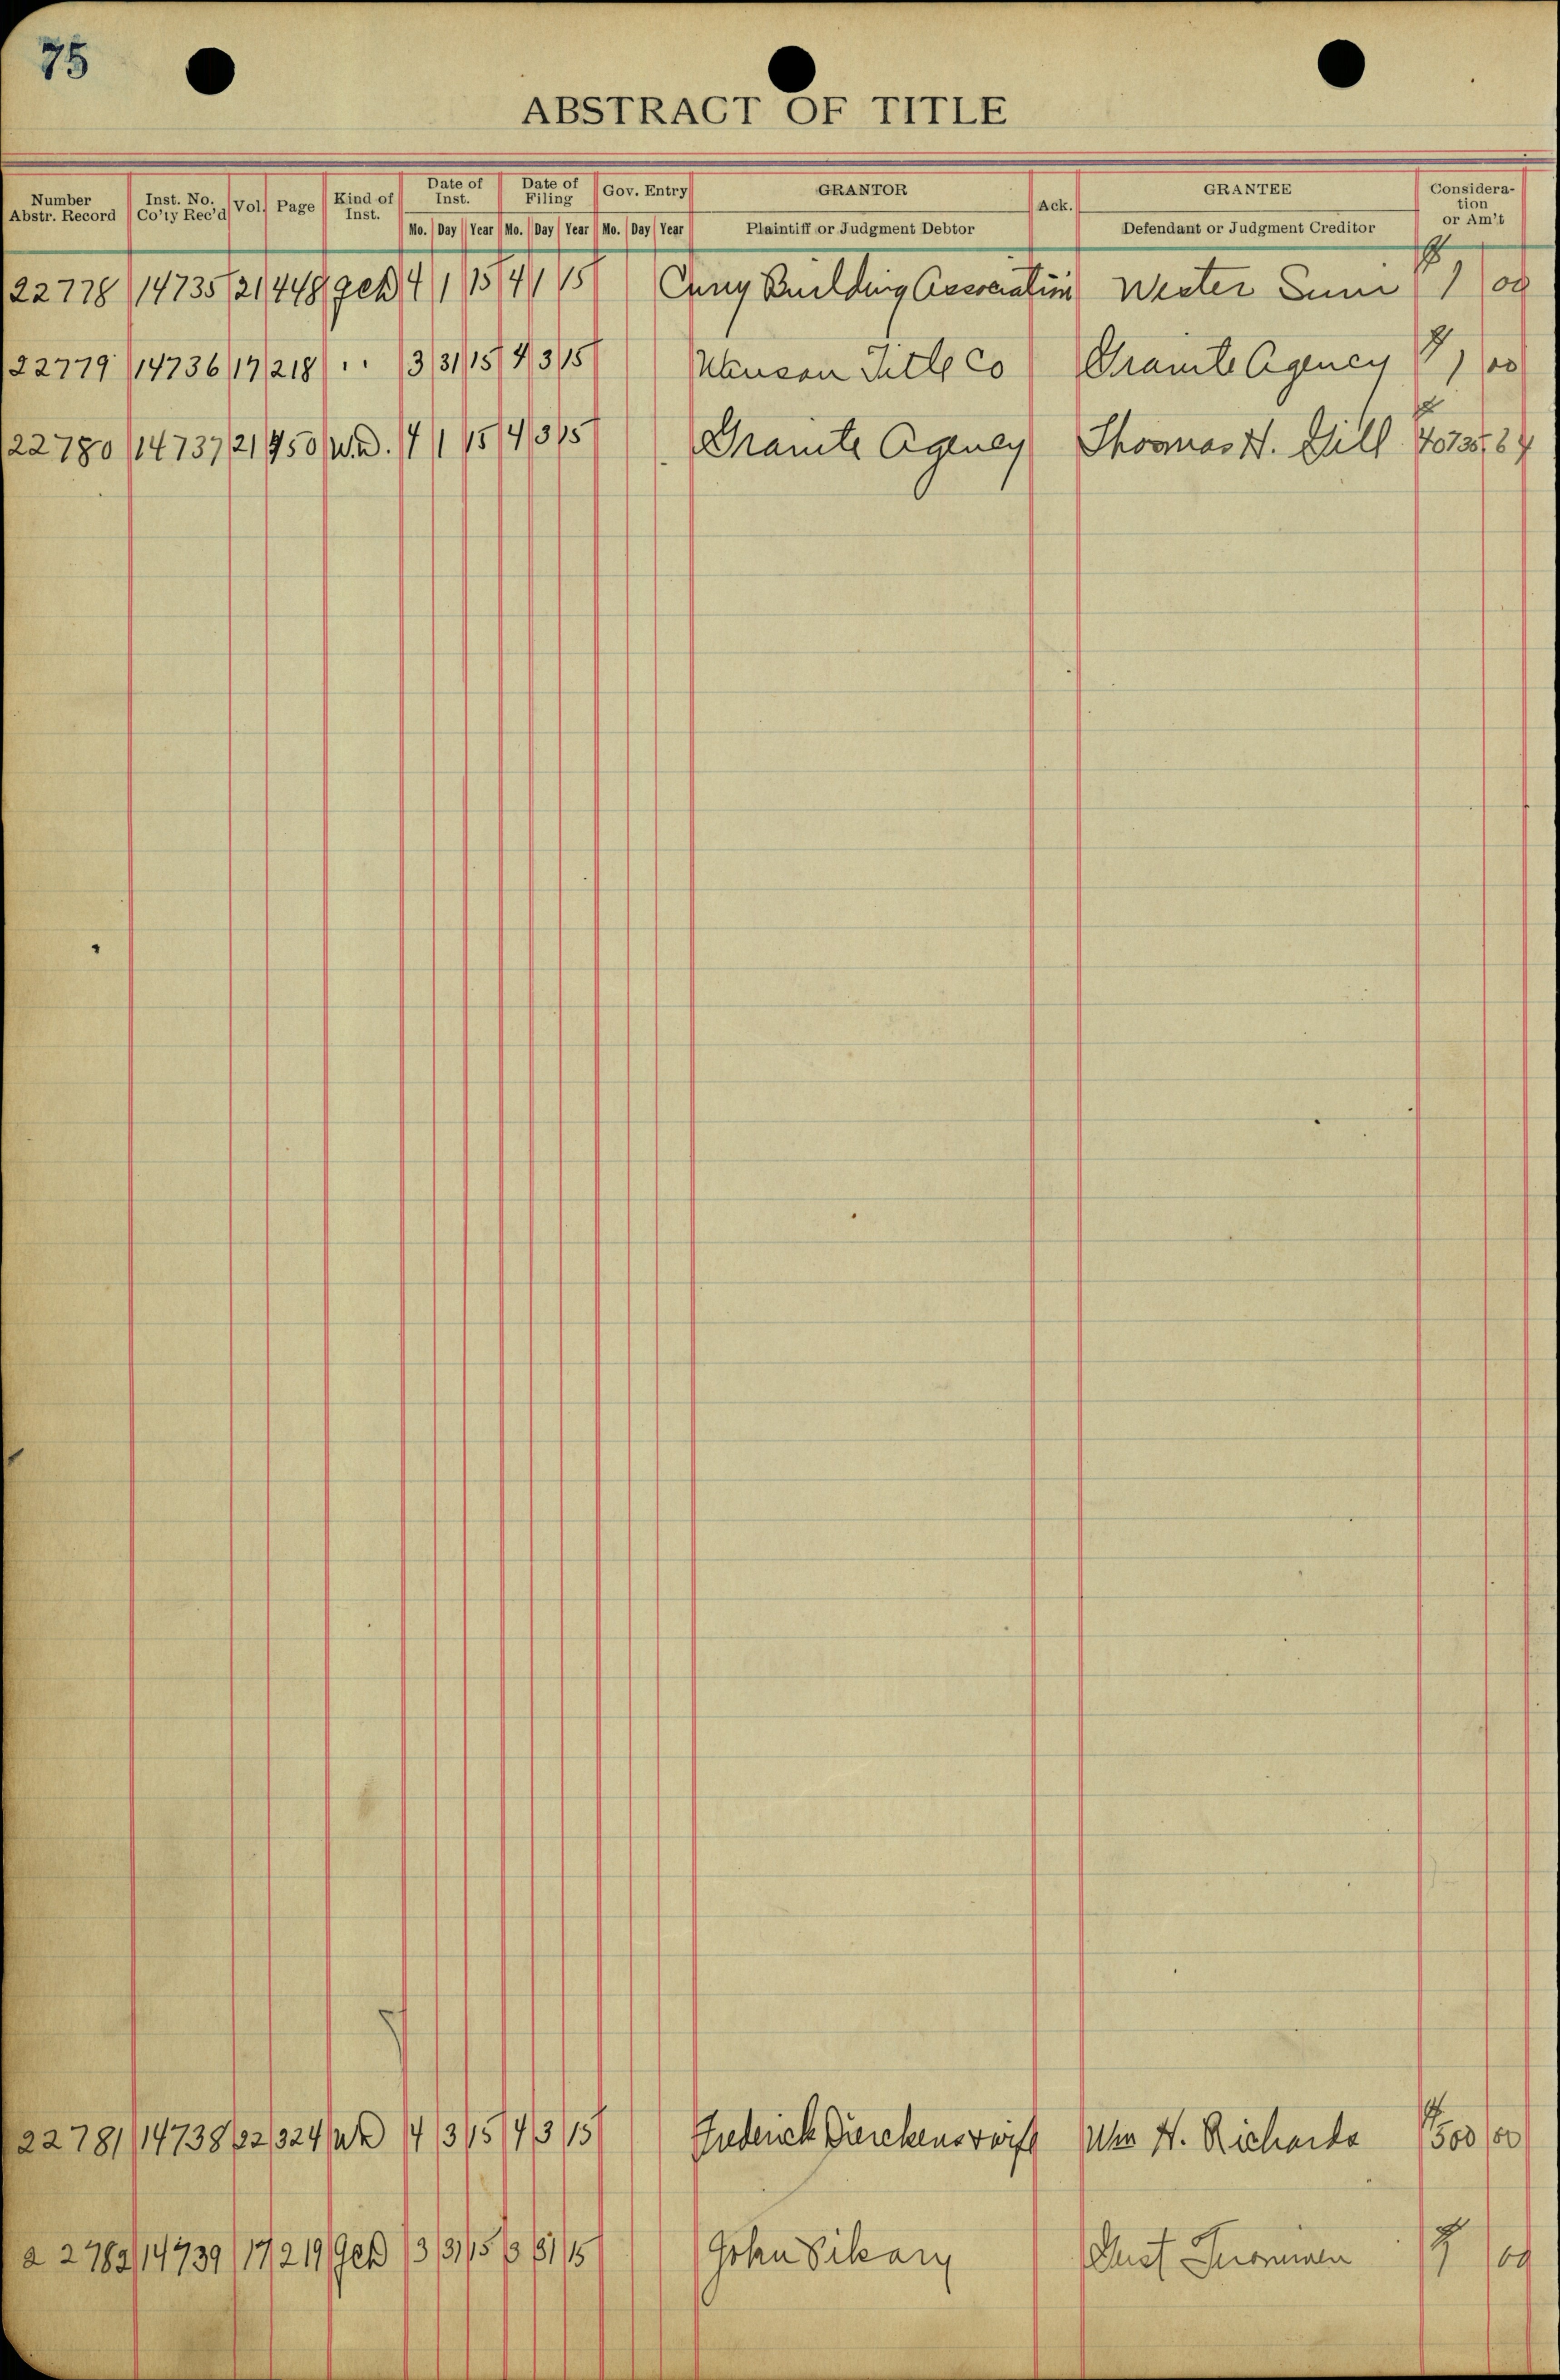 75
ABSTRACT OF TITLE
Number Abstr. Record Inst. No. Co'ty Rec'd Vol. Page Kind of Inst. Date of Inst. Date of Filing Gov. Entry GRANTOR Ack. GRANTEE Consideration or Am't
Mo. Day Year Mo. Day Year Mo. Day Year Plaintiff or Judgment Debtor Defendant or Judgment Creditor
22778 14735 21 448 QCD 4 1 15 4 1 15 Building Association $ 1 00
22779 14736 17 218 " 3 31 15 4 3 15 Title Co Granite Agency $ 1 00
22780 14737 21 450 W.D. 4 1 15 4 3 15 Granite Agency Thomas H. Gill
22781 14738 22 324 WD 4 3 15 4 3 15 Frederick Dierckens & wife Wm H. Richards $ 500 00
22782 14739 17 219 QCD 3 31 15 3 31 15 John Gust $ 1 00